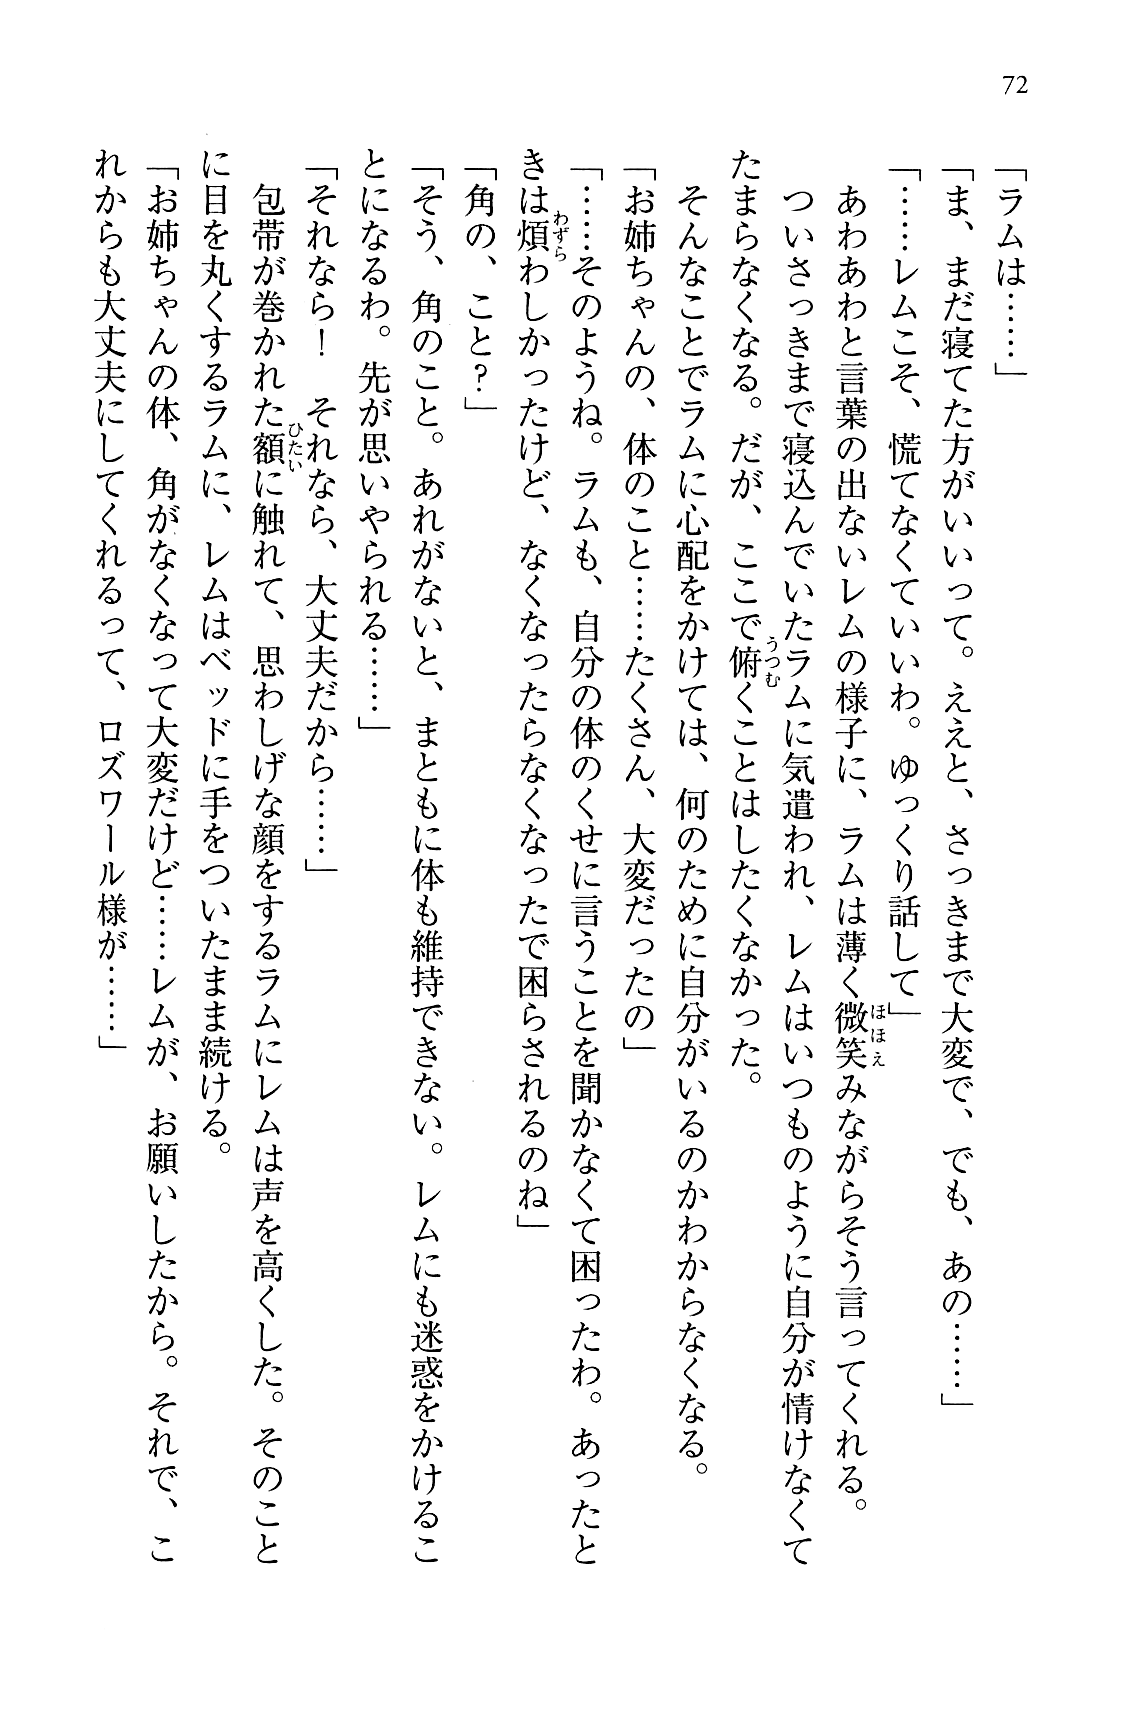 72
「ラムは……」
「ま、まだ寝てた方がいいって。ええと、さっきまで大変で、でも、あの……」
「……レムこそ、慌てなくていいわ。ゆっくり話して」
　あわあわと言葉の出ないレムの様子に、ラムは薄く微笑みながらそう言ってくれる。
　ついさっきまで寝込んでいたラムに気遣われ、レムはいつものように自分が情けなくて
たまらなくなる。だが、ここで俯くことはしたくなかった。
　そんなことでラムに心配をかけては、何のために自分がいるのかわからなくなる。
「お姉ちゃんの、体のこと……たくさん、大変だったの」
「……そのようね。ラムも、自分の体のくせに言うことを聞かなくて困ったわ。あったと
きは煩わしかったけど、なくなったらなくなったで困らされるのね」
「角の、こと？」
「そう、角のこと。あれがないと、まともに体も維持できない。レムにも迷惑をかけるこ
とになるわ。先が思いやられる……」
「それなら！　それなら、大丈夫だから……」
　包帯が巻かれた額に触れて、思わしげな顔をするラムにレムは声を高くした。そのこと
に目を丸くするラムに、レムはベッドに手をついたまま続ける。
「お姉ちゃんの体、角がなくなって大変だけど……レムが、お願いしたから。それで、こ
れからも大丈夫にしてくれるって、ロズワール様が……」